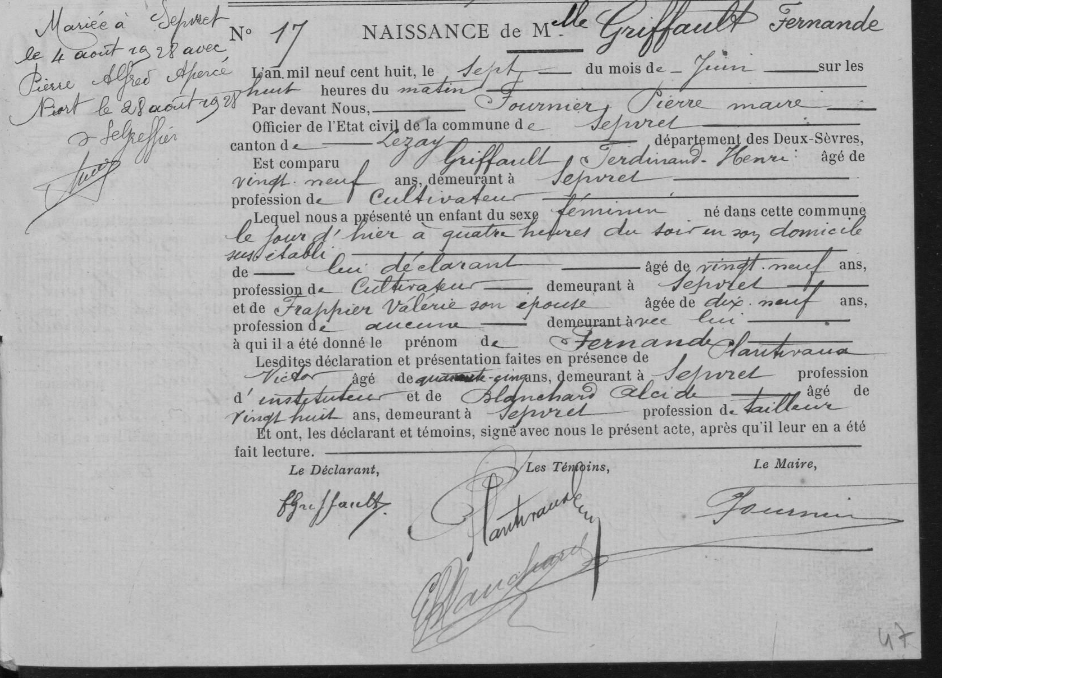 Mariée à Sepvret
le 4 août 1928 avec
Pierre Alfred Apercé
Niort le 28 août 1928
Le Greffier
N° 17 NAISSANCE de M^elle Griffault Fernande
L'an mil neuf cent huit, le sept du mois de Juin sur les
huit heures du matin
Par devant Nous, Fournier, Pierre maire
Officier de l'Etat civil de la commune de Sepvret
canton de Lezay département des Deux-Sèvres,
Est comparu Griffault Ferdinand-Henri âgé de
vingt-neuf ans, demeurant à Sepvret
profession de Cultivateur
Lequel nous a présenté un enfant du sexe féminin né dans cette commune
le jour d'hier à quatre heures du soir en son domicile
sus établi
de lui déclarant âgé de vingt-neuf ans,
profession de Cultivateur demeurant à Sepvret
et de Frappier Valérie son épouse âgée de dix-neuf ans,
profession de aucune demeurant avec lui
à qui il a été donné le prénom de Fernande
Lesdites déclaration et présentation faites en présence de Plantivaux
Victor âgé de quarante-cinq ans, demeurant à Sepvret profession
d'instituteur et de Blanchard Alcide âgé de
vingt huit ans, demeurant à Sepvret profession de tailleur
Et ont, les déclarant et témoins, signé avec nous le présent acte, après qu'il leur en a été
fait lecture.
Le Déclarant, Les Témoins, Le Maire,
Griffault F. Plantivaux Fournier
Blanchard
47